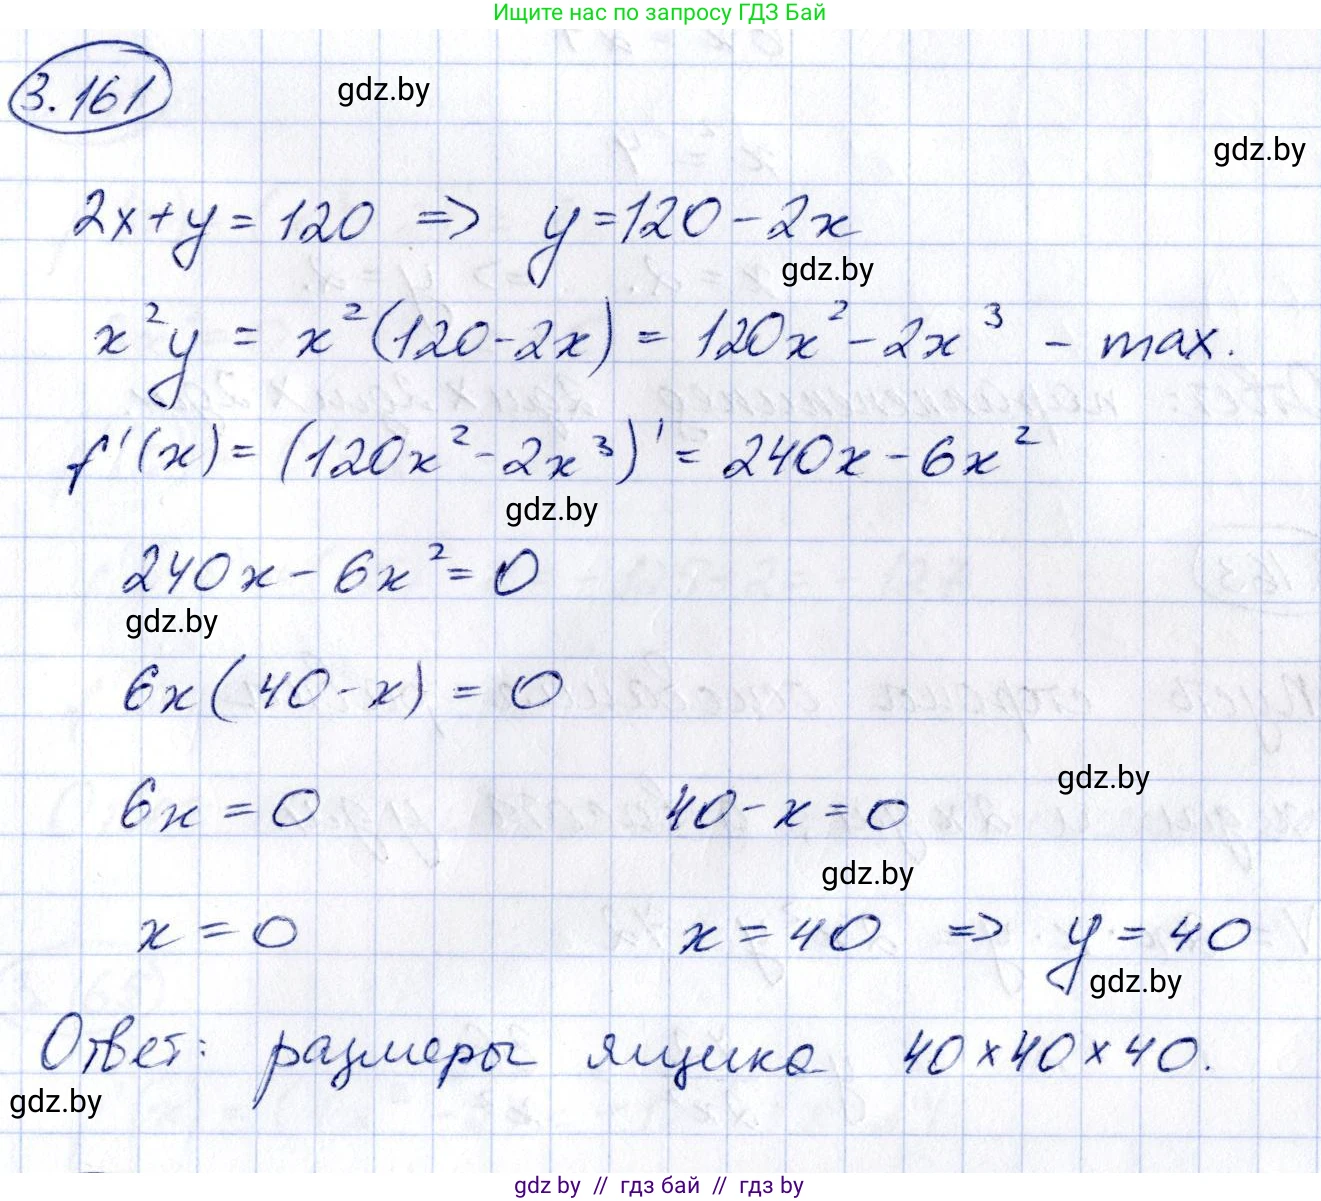 Ищите нас по запросу ГДЗ Бай
3.161
gdz.by
gdz.by
2x+y=120 => y=120-2x
gdz.by
x²y = x²(120-2x) = 120x²-2x³ - max.
f'(x)=(120x²-2x³)'=240x-6x²
gdz.by
240x-6x²=0
gdz.by
6x(40-x)=0
gdz.by
6x=0 40-x=0
gdz.by
x=0 x=40 => y=40
gdz.by
Ответ: размеры ящика 40×40×40.
gdz.by
gdz.by // гдз бай // гдз by